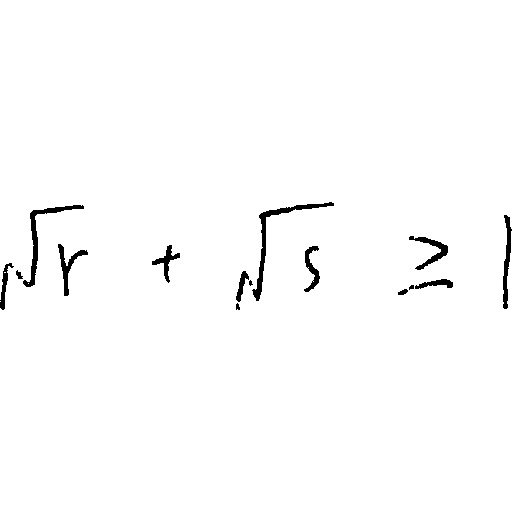 √r + √s ≥ 1